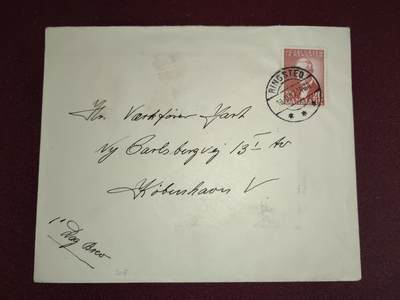 RINGSTED
Hr. Værkfører Hart
Ny Carlsbergvej 13 I Av
København V
1' Dag Brev